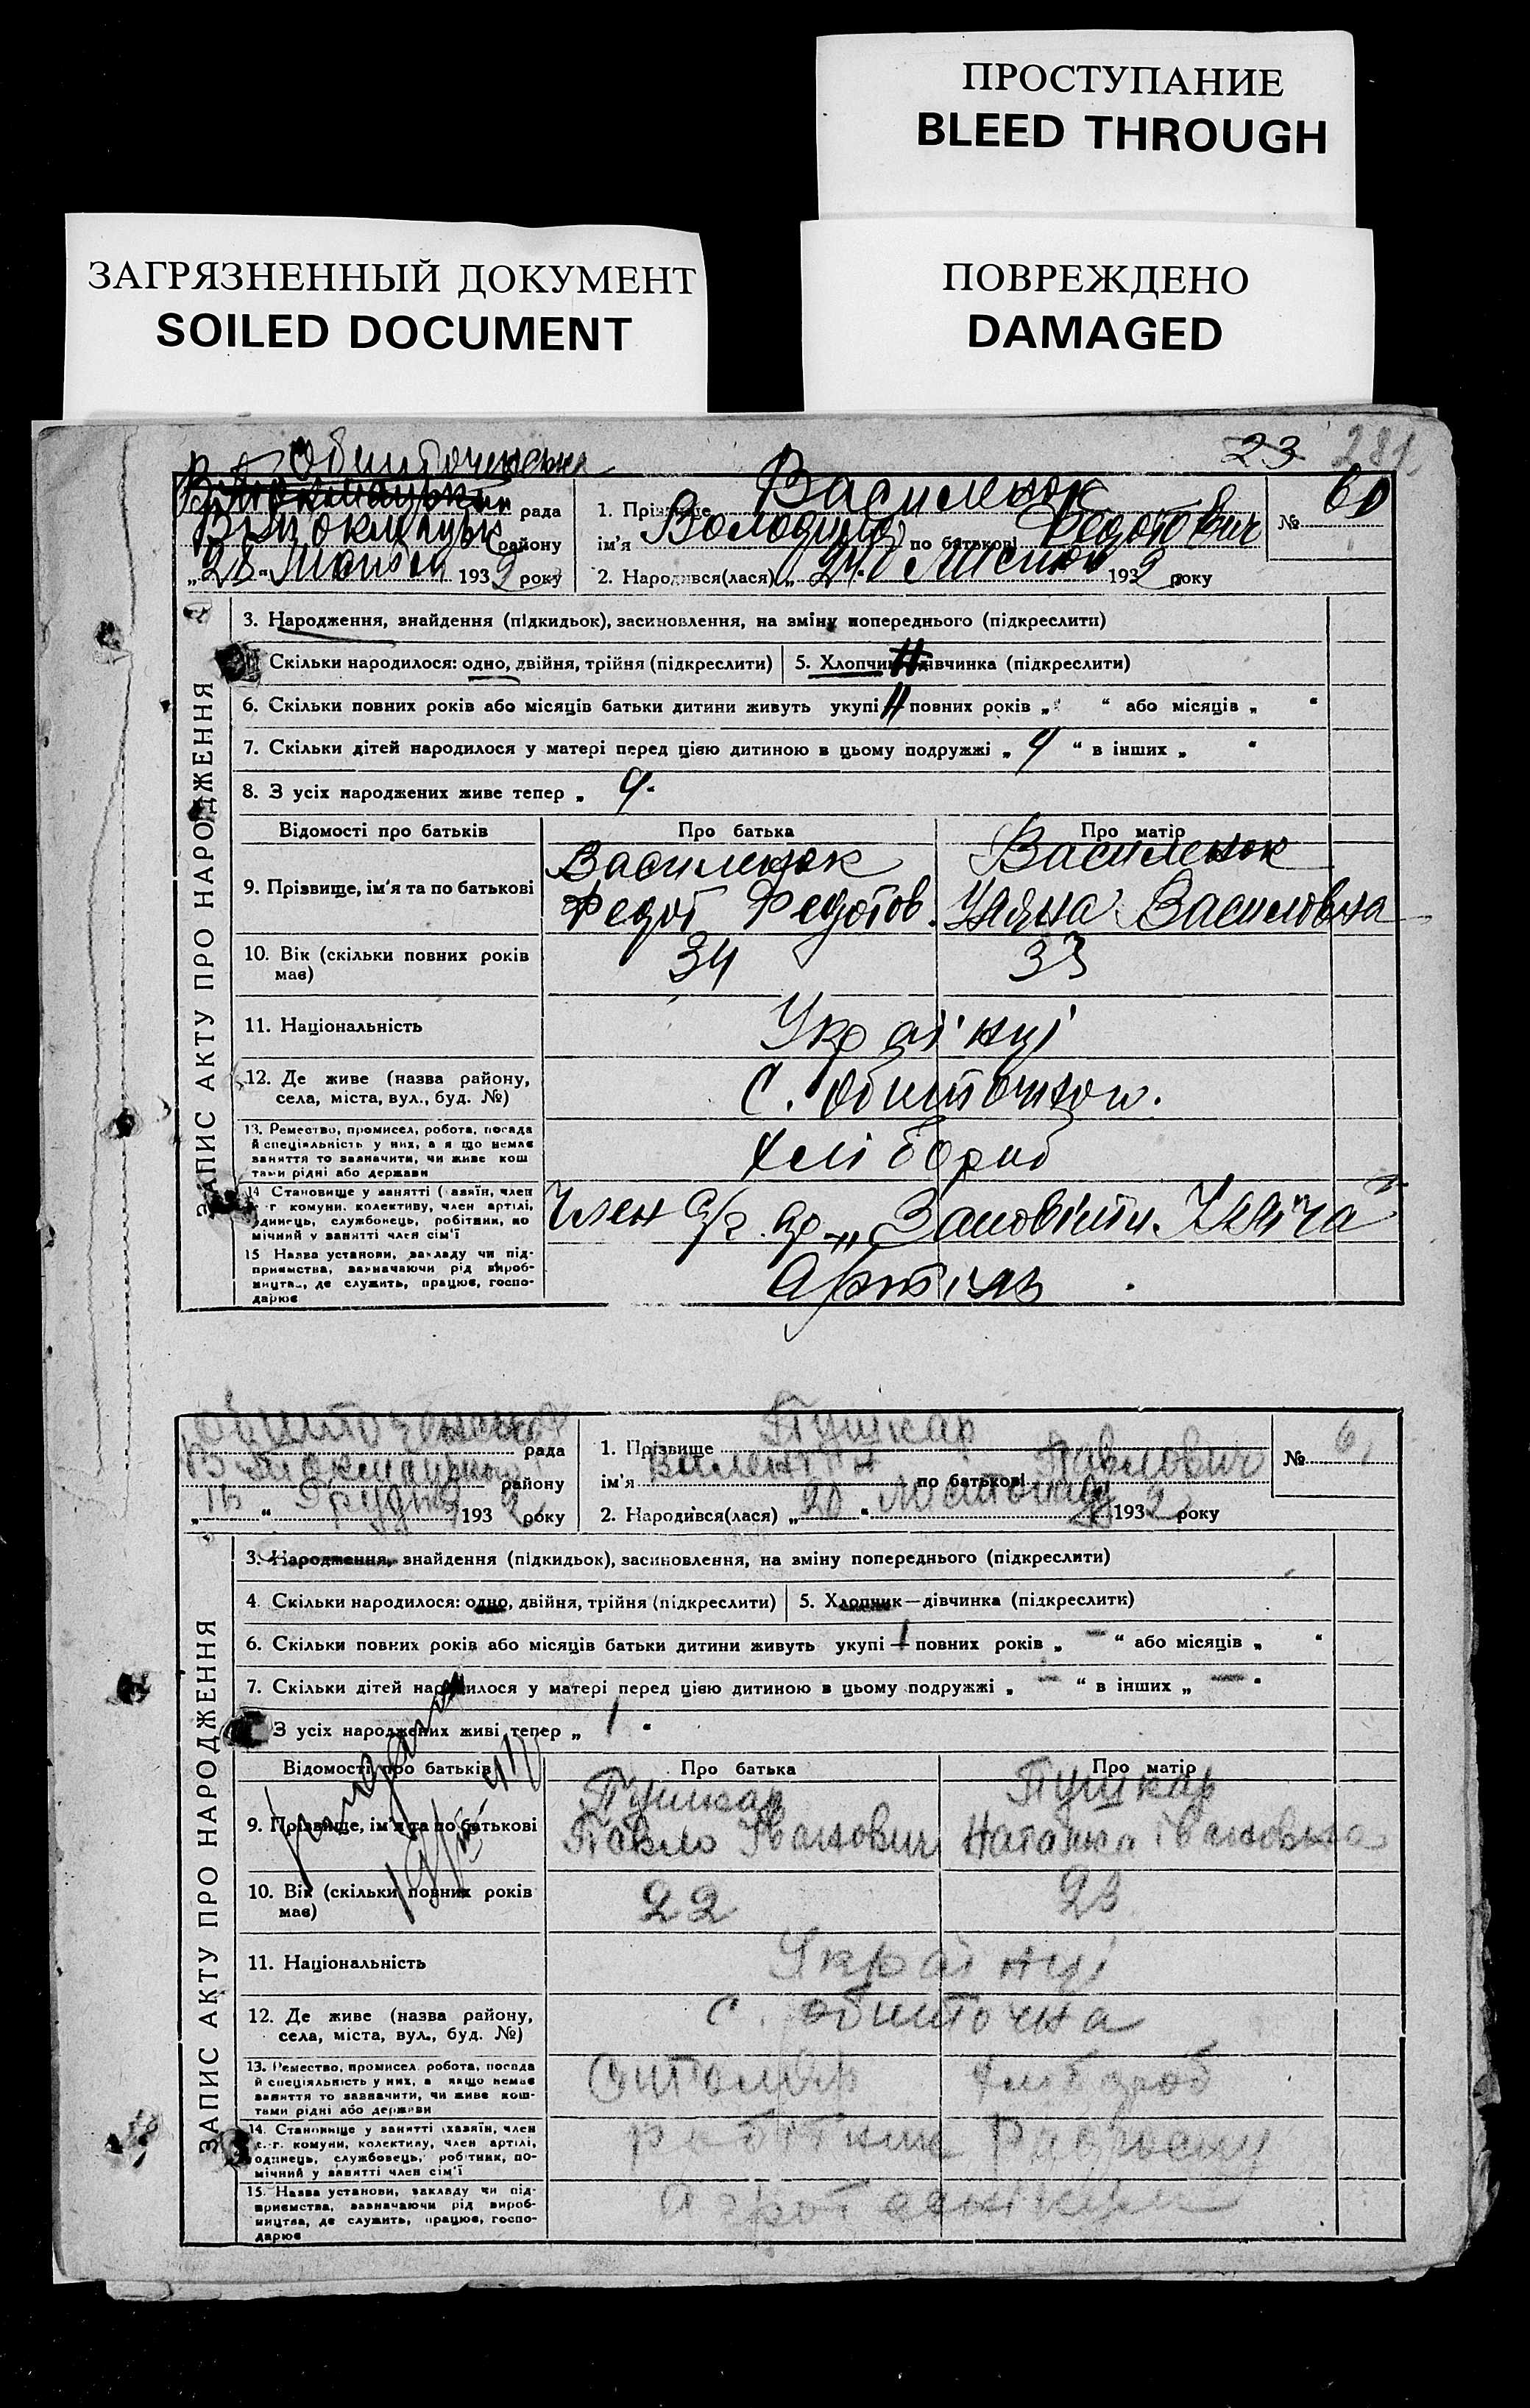 ПРОСТУПАНИЕ
BLEED THROUGH
ЗАГРЯЗНЕННЫЙ ДОКУМЕНТ
SOILED DOCUMENT
ПОВРЕЖДЕНО
DAMAGED
23 281
рада
району
193 2 року
1. Прізвище Василенок
ім'я Володимир по батькові Федотович
2. Народився(лася) „ 24 “ 193 2 року
№ 60
ЗАПИС АКТУ ПРО НАРОДЖЕННЯ
3. Народження, знайдення (підкидьок), засиновлення, на зміну попереднього (підкреслити)
Скільки народилося: одно, двійня, трійня (підкреслити) 5. Хлопчик дівчинка (підкреслити)
6. Скільки повних років або місяців батьки дитини живуть укупі 11 повних років „ “ або місяців „ “
7. Скільки дітей народилося у матері перед цією дитиною в цьому подружжі „ 4 “ в інших „ “
8. З усіх народжених живе тепер „ 4.
Відомості про батьків Про батька Про матір
9. Прізвище, ім'я та по батькові
Василенок Василенок
Федот Федотов. Уляна Василовна
10. Вік (скільки повних років має) 34 33
11. Національність Українці
12. Де живе (назва району, села, міста, вул., буд. №) С. Обиточном.
13. Ремество, промисел, робота, посада
й спеціяльність у них, а я що немає
заняття то зазначити, чи живе кош
тами рідні або держави
Хлібороб
14 Становище у занятті ( азяїн, член
г комуни, колективу, член артілі,
одинець, службонець, робітник, по
мічний у занятті член сім'ї
Член с/г. ар. „Заповіти Ілліча"
15 Назва установи, закладу чи під-
приємства, зазначаючи рід вироб-
ництва, де служить, працює, госпо-
дарює
Артіль
рада
району
„ 16 “ Грудня 193 2 року
1. Прізвище Пушкар
ім'я Валентін по батькові Павлович
2. Народився(лася) „ 20 “ Листопада 193 2 року
№ 6
ЗАПИС АКТУ ПРО НАРОДЖЕННЯ
3. Народження, знайдення (підкидьок), засиновлення, на зміну попереднього (підкреслити)
4. Скільки народилося: одно, двійня, трійня (підкреслити) 5. Хлопчик—дівчинка (підкреслити)
6. Скільки повних років або місяців батьки дитини живуть укупі 1 повних років „ — “ або місяців „ “
7. Скільки дітей народилося у матері перед цією дитиною в цьому подружжі „ — “ в інших „ — “
З усіх народжених живі тепер „ 1 "
Відомості про батьків Про батька Про матір
9. Прізвище, ім'я та по батькові
Пушкар Пушкар
Павло Іванович Наталка Івановна
10. Вік (скільки повних років має) 22 23
11. Національність Українці
12. Де живе (назва району, села, міста, вул., буд. №) С. Обиточна
13. Ремество, промисел, робота, посада
й спеціяльність у них, а якщо немає
заняття то зазначити, чи живе кош-
тами рідні або держави
Столяр Хлібороб
14. Становище у занятті (хазяїн, член
с.-г. комуни, колективу, член артілі,
одинець, службовець, робітник, по-
мічний у занятті член сім'ї
Робітник
15. Назва установи, закладу чи під-
приємства, зазначаючи рід вироб-
ництва, де служить, працює, госпо-
дарює